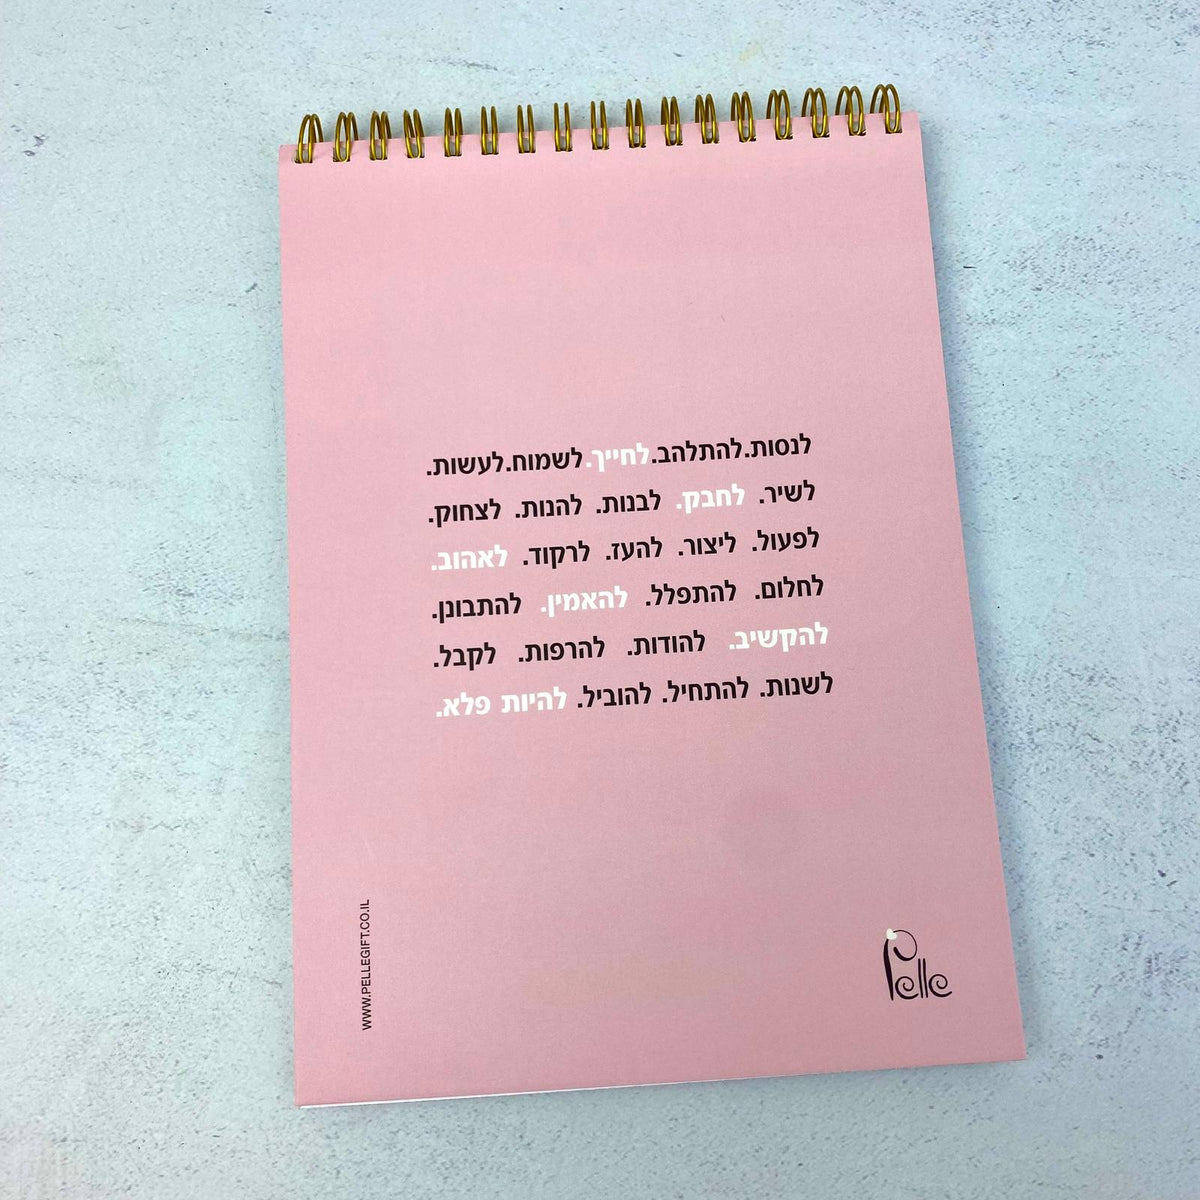 לנסות.להתלהב.לחייך.לשמוח.לעשות.
לשיר. לחבק. לבנות. להנות. לצחוק.
לפעול. ליצור. להעז. לרקוד. לאהוב.
לחלום. להתפלל. להאמין. להתבונן.
להקשיב. להודות. להרפות. לקבל.
לשנות. להתחיל. להוביל. להיות פלא.
WWW.PELLEGIFT.CO.IL
Pelle